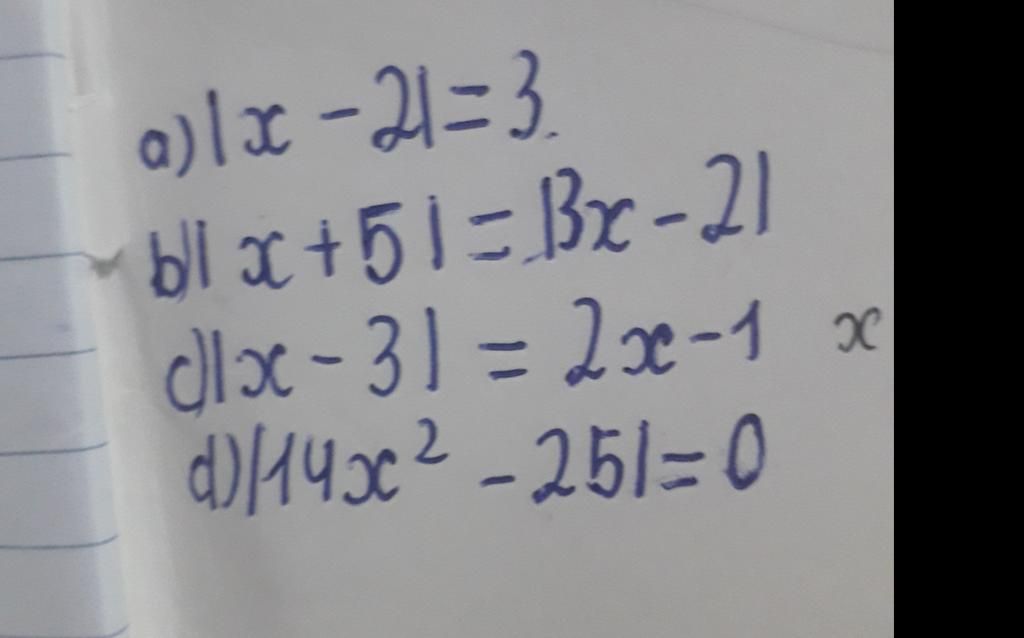 a) |x - 2| = 3.
b) |x + 5| = |3x - 2|
c) |x - 3| = 2x - 1 x
d) |14x² - 25| = 0